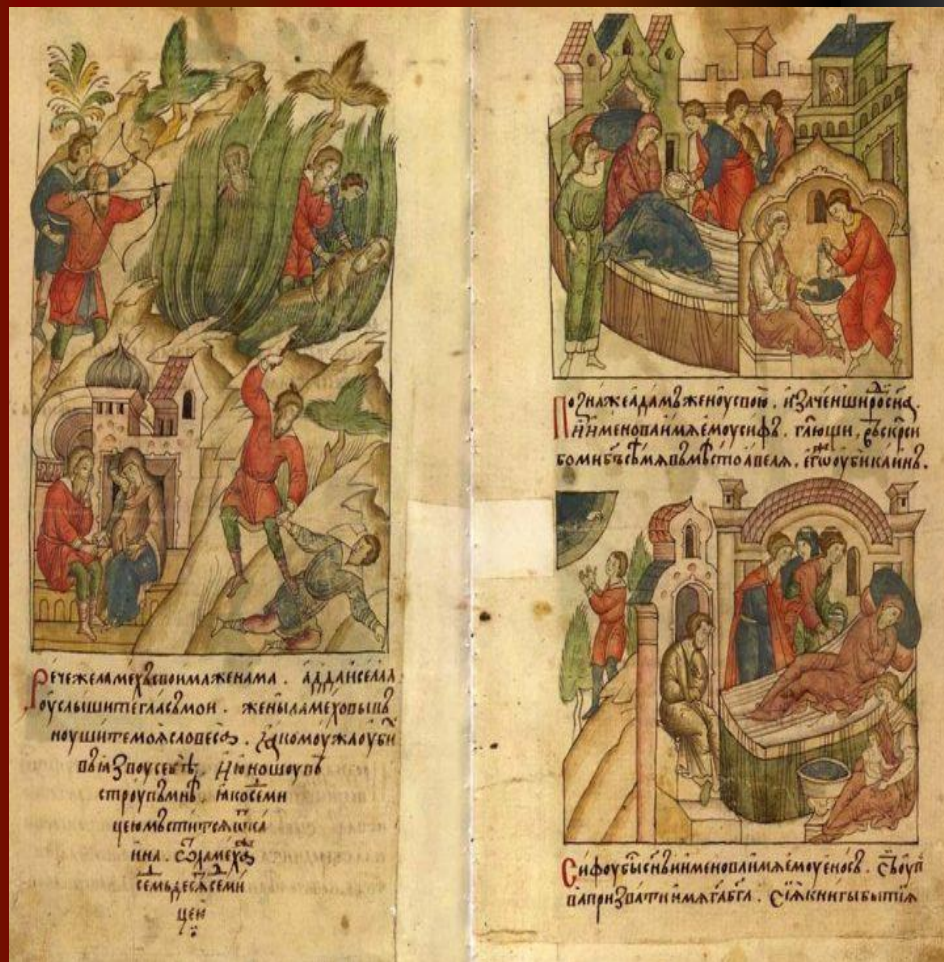 Речежеламехъсвоимаженама . аддаиселла
оуслышитегласъмои . женыламеховывъ
ноушитемоясловеса . ꙗкомоужаоуби
въꙗзвоусебѣ , июношоувъ
строупъмнѣ . ꙗкосеми
цеюмьститсяѿка
ина . ѿламеха
семьдесѧсеми
цею
Познажеадамъженоусвою . изаченширодисна .
иименоваимяемоусифъ . глющи , въскреси
бомибъсѣмявъмѣстоавеля . егожоубикаинъ .
Сифоубысн҃ъиименоваимяемоуеносъ . съоуп
вапризватиимягабга . Сиꙗкнигыбытия